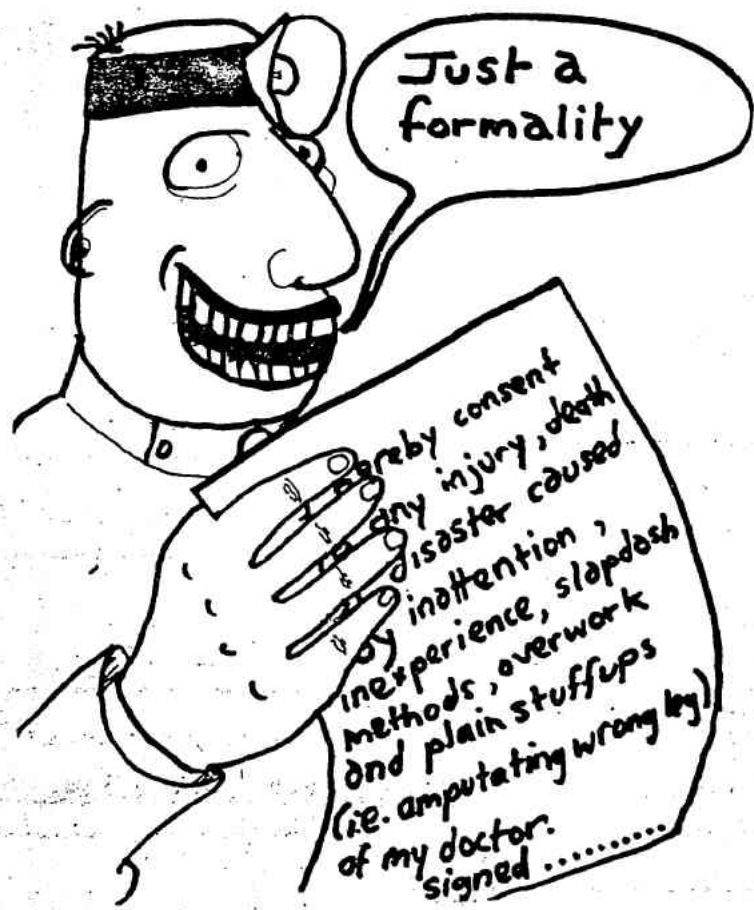 Just a
formality
ereby consent
any injury, death
disaster caused
by inattention,
inexperience, slapdash
methods, overwork
and plain stuffups
(i.e. amputating wrong leg)
of my doctor.
signed ..........